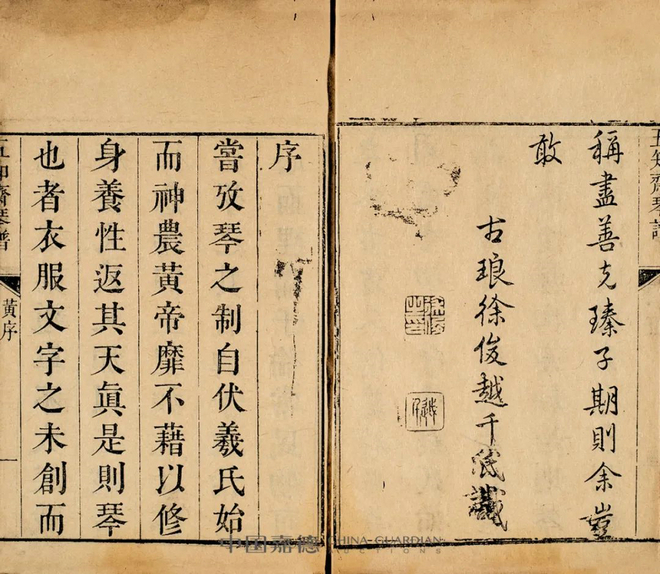 五知齋琴譜
稱盡善克臻子期則余豈
敢
古琅徐俊越千氏識
序
嘗攷琴之制自伏羲氏始
而神農黃帝靡不藉以修
身養性返其天眞是則琴
也者衣服文字之未創而
五知齋琴譜
黃序
中国嘉德 CHINA GUARDIAN